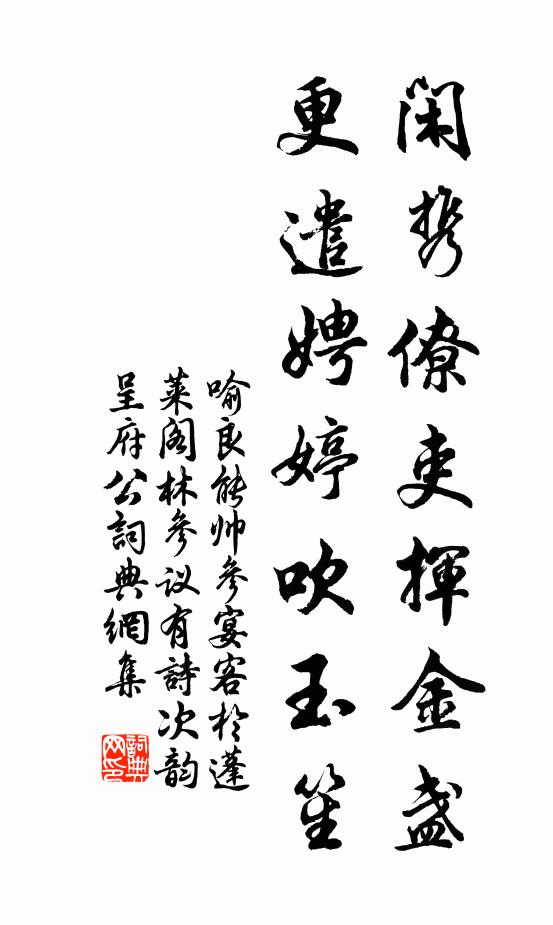 閑携僚吏揮金盞
更遣娉婷吹玉笙
喻良能帅參宴客於蓬
莱阁林參议有詩次韵
呈府公詞典網集
詞典网印